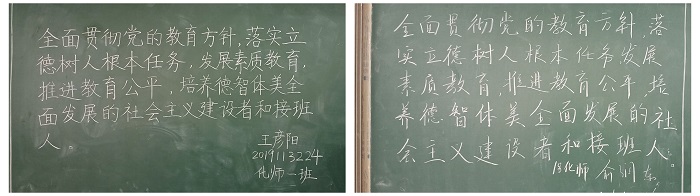 全面贯彻党的教育方针,落实立
德树人根本任务,发展素质教育,
推进教育公平,培养德智体美全
面发展的社会主义建设者和接班
人。
王彦阳
2019113224
化师一班
全面贯彻党的教育方针,落
实立德树人根本任务发展
素质教育,推进教育公平,培
养德智体美全面发展的社
会主义建设者和接班人。
化师 俞